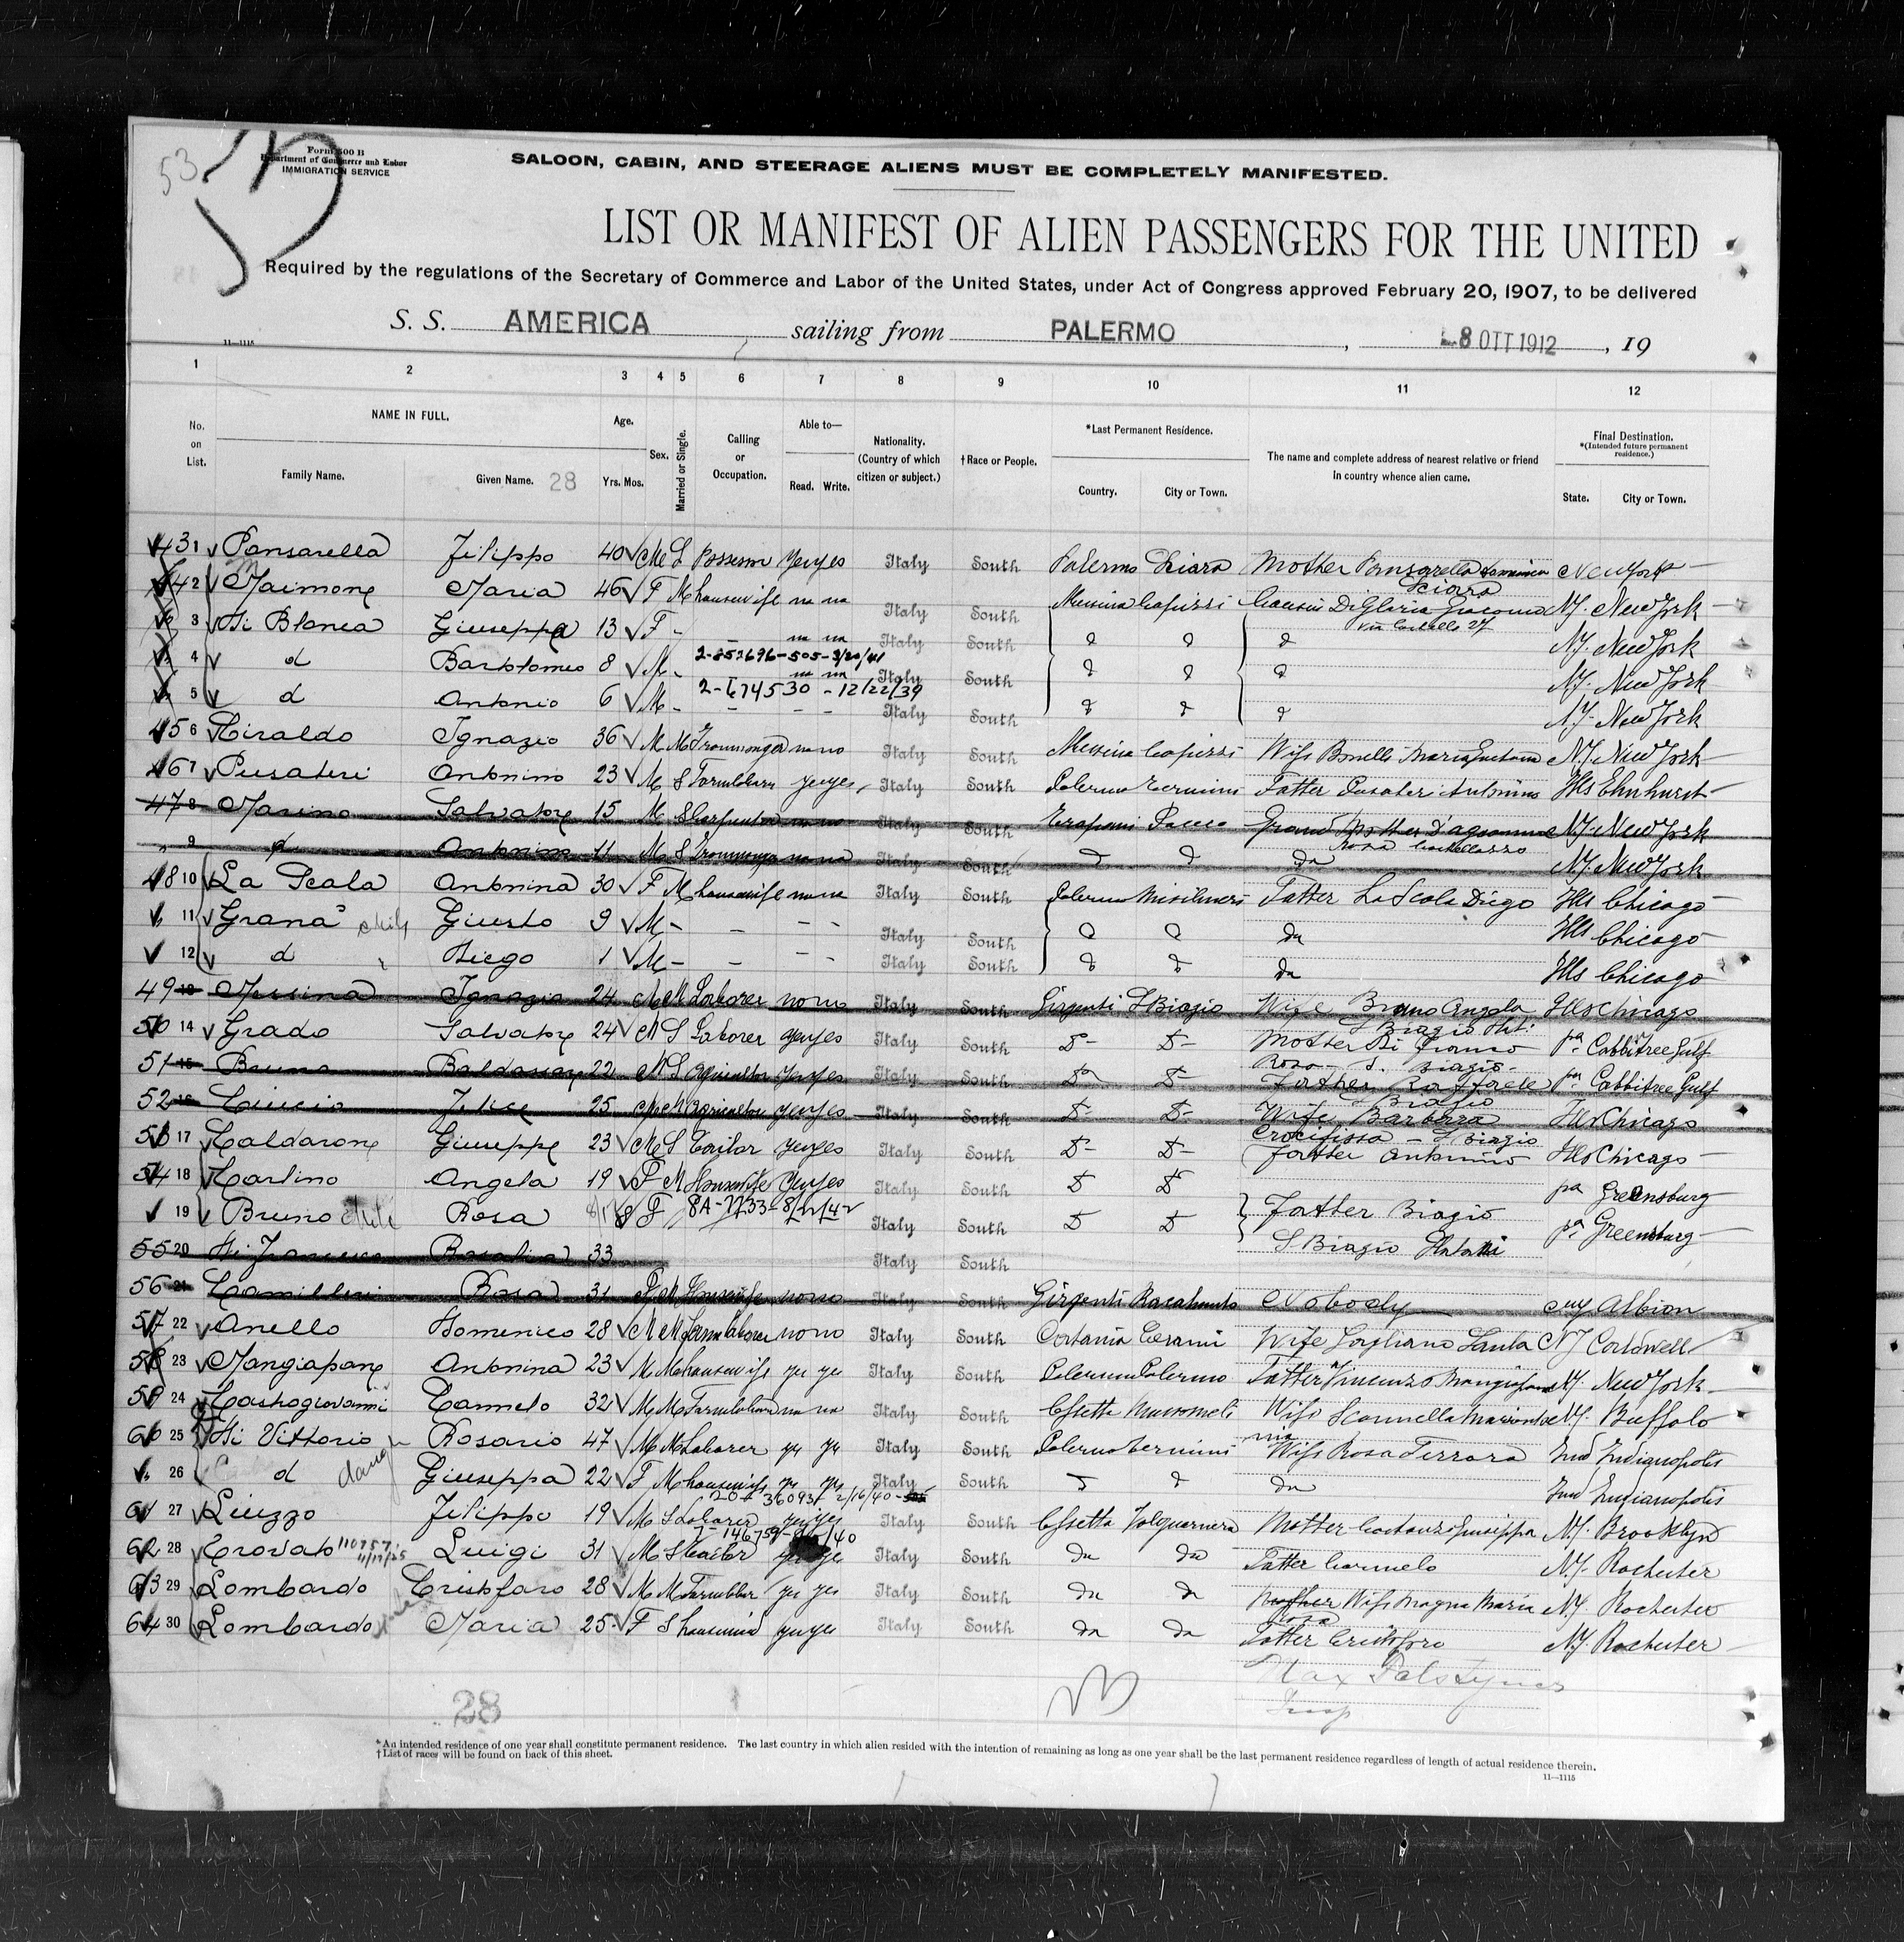 53
Form 500 B
Department of Commerce and Labor
IMMIGRATION SERVICE
SALOON, CABIN, AND STEERAGE ALIENS MUST BE COMPLETELY MANIFESTED.
LIST OR MANIFEST OF ALIEN PASSENGERS FOR THE UNITED
Required by the regulations of the Secretary of Commerce and Labor of the United States, under Act of Congress approved February 20, 1907, to be delivered
S. S. AMERICA sailing from PALERMO, 8 OTT 1912, 19
11—1115
1 2 3 4 5 6 7 8 9 10 11 12
No. on List.
NAME IN FULL.
Family Name.
Given Name. 28
Age.
Yrs. Mos.
Sex.
Married or Single.
Calling or Occupation.
Able to—
Read. Write.
Nationality. (Country of which citizen or subject.)
†Race or People.
*Last Permanent Residence.
Country. City or Town.
The name and complete address of nearest relative or friend in country whence alien came.
Final Destination.
*(Intended future permanent residence.)
State. City or Town.
43 1 Pansarella Filippo 40 M S yes yes Italy South Palermo Sciara Mother Pansarella New York
Sciara
2 Maimone Maria 46 F M housewife no no Italy South Messina Capizzi Di Gloria Giacomo N.Y. New York
3 Di Blanca Giuseppa 13 F - - no no Italy South d d d N.Y. New York
2-252696-505-3/20/41
4 d Bartolomeo 8 M - no no Italy South d d d N.Y. New York
2-674530 - 12/22/39
5 d Antonio 6 M - - - - Italy South d d d N.Y. New York
45 6 Ignazio 36 M M Ironmonger no no Italy South Messina Capizzi Wife N.Y. New York
46 7 Pusateri Antonino 23 M S Farmlaborer yes yes Italy South Palermo Termini Father Pusateri Antonino Ills Elmhurst
47 8 Marino Salvatore 15 M S Carpenter no no Italy South Trapani Grand Mother N.Y. New York
9 d Antonino 11 M S Ironmonger no no Italy South d d do N.Y. New York
48 10 La Scala Antonina 30 F M housewife no no Italy South Palermo Misilmeri Father La Scola Diego Ills Chicago
11 Grana Giusto 9 M - - - - Italy South d d do Ills Chicago
12 d Diego 1 M - - - - Italy South d d do Ills Chicago
49 13 Messina Ignazio 24 M M Laborer no no Italy South Girgenti S Biagio Wife Bruno Angela Ills Chicago
50 14 Grado Salvatore 24 M S Laborer yes yes Italy South D- D- Mother Di Franco Pa
Rosa - S. Biagio -
51 15 Bruno Baldassare 22 M S Agricultor yes yes Italy South Do D- Father Raffaele Pa
S Biagio
52 16 Felice 25 M M Agricultor yes yes Italy South D- D- Wife Barbera Ills Chicago
Crocifissa - S Biagio
53 17 Caldarone Giuseppe 23 M S Tailor yes yes Italy South D- D- Father Antonino Ills Chicago
54 18 Carlino Angela 19 F M Housewife yes yes Italy South D D Pa Greensburg
8A-7733-8/21/42
19 Bruno Rosa F Italy South D D Father Biagio Pa Greensburg
S Biagio
55 20 Di Francesco Rosalia 33 Italy South
56 21 Camilleri Rosa 31 F M Housewife no no Italy South Girgenti Racalmuto Nobody Albion
57 22 Anello Domenico 28 M M Farm laborer no no Italy South Catania Cesarò Wife Gagliano Santa NJ Caldwell
58 23 Mangiapane Antonina 23 M M housewife ye ye Italy South Palermo Palermo Father Vincenzo Mangiapane N.Y. New York
59 24 Castrogiovanni Carmelo 32 M M Farmlaborer no no Italy South Cssetta Mussomeli Wife Scannella N.Y. Buffalo
60 25 Di Vittorio Rosario 47 M M Laborer ye ye Italy South Palermo Termini Wife Rosa Ferrara Ind Indianapolis
26 d Giuseppa 22 F M housewife ye ye Italy South d do Ind Indianapolis
61 27 Liuzzo Filippo 19 M S Laborer ye yes Italy South Cssetta Valguarnera Mother Giuseppa N.Y. Brooklyn
62 28 Trovato 110757 11/17/25 Luigi 31 M S Tailor ye Italy South do do Father Carmelo N.Y. Rochester
63 29 Lombardo Cristofaro 28 M M ye yes Italy South do do Mother Wife Magna Maria N.Y. Rochester
Rosa
64 30 Lombardo Maria 25 F S housemaid ye yes Italy South do do Father Cristoforo N.Y. Rochester
28
Insp
*An intended residence of one year shall constitute permanent residence. The last country in which alien resided with the intention of remaining as long as one year shall be the last permanent residence regardless of length of actual residence therein.
†List of races will be found on back of this sheet.
11—1115